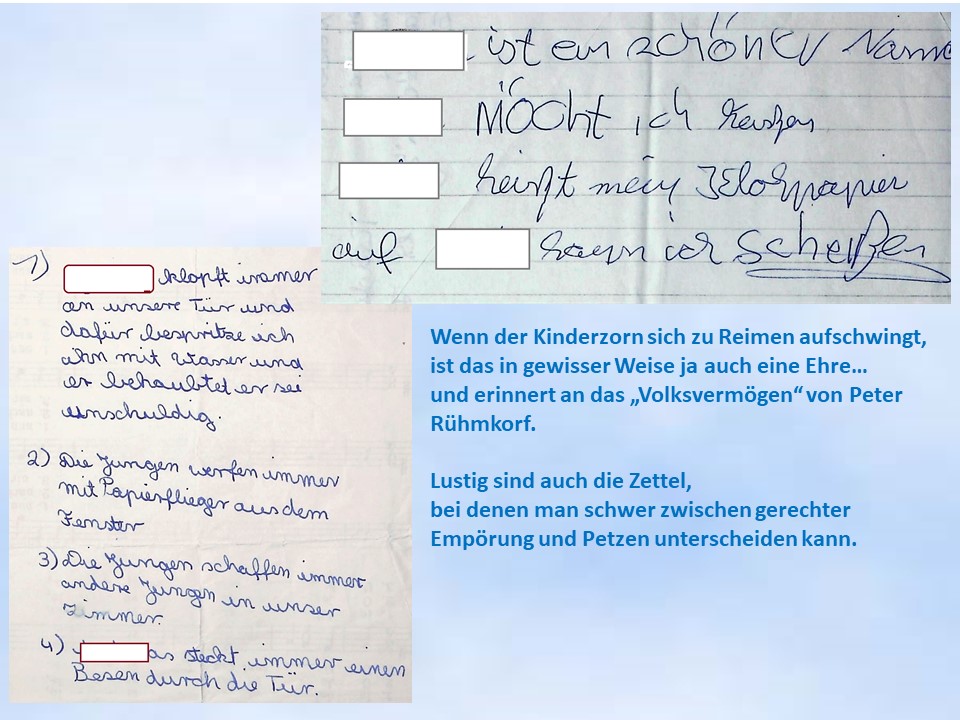 ist ein schöner Name
MÖCht ich heißen
heißt mein Klospapier
auf kann ich Scheißen
1) klopft immer
an unsere Tür und
dafür bespritze ich
ihn mit Wasser und
er behaubtet er sei
unschuldig.
2) Die Jungen werfen immer
mit Papierflieger aus dem
Fenster
3) Die Jungen schaffen immer
andere Jungen in unser
Zimmer.
4) as steckt immer einen
Besen durch die Tür.
Wenn der Kinderzorn sich zu Reimen aufschwingt,
ist das in gewisser Weise ja auch eine Ehre…
und erinnert an das „Volksvermögen“ von Peter
Rühmkorf.
Lustig sind auch die Zettel,
bei denen man schwer zwischen gerechter
Empörung und Petzen unterscheiden kann.